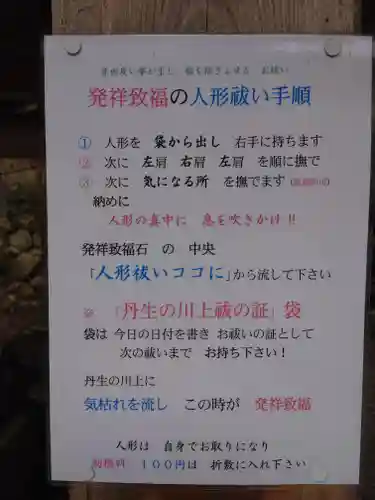 発祥致福の人形祓い手順
① 人形を 袋から出し 右手に持ちます
② 次に 左肩 右肩 左肩 を順に撫で
③ 次に 気になる所 を撫でます
納めに
人形の真中に 息を吹きかけ!!
発祥致福石 の 中央
「人形祓いココに」から流して下さい
※ 「丹生の川上祓の証」袋
袋は 今日の日付を書き お祓いの証として
次の祓いまで お持ち下さい!
丹生の川上に
気枯れを流し この時が 発祥致福
人形は 自身でお取りになり
初穂料 100円は 折敷に入れ下さい